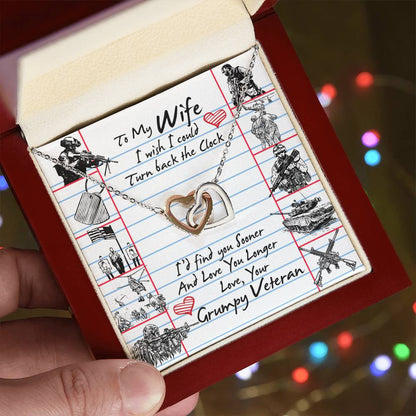 To My Wife
I wish I could
Turn back the Clock
I'd find you Sooner
And Love You Longer
Love, Your
Grumpy Veteran